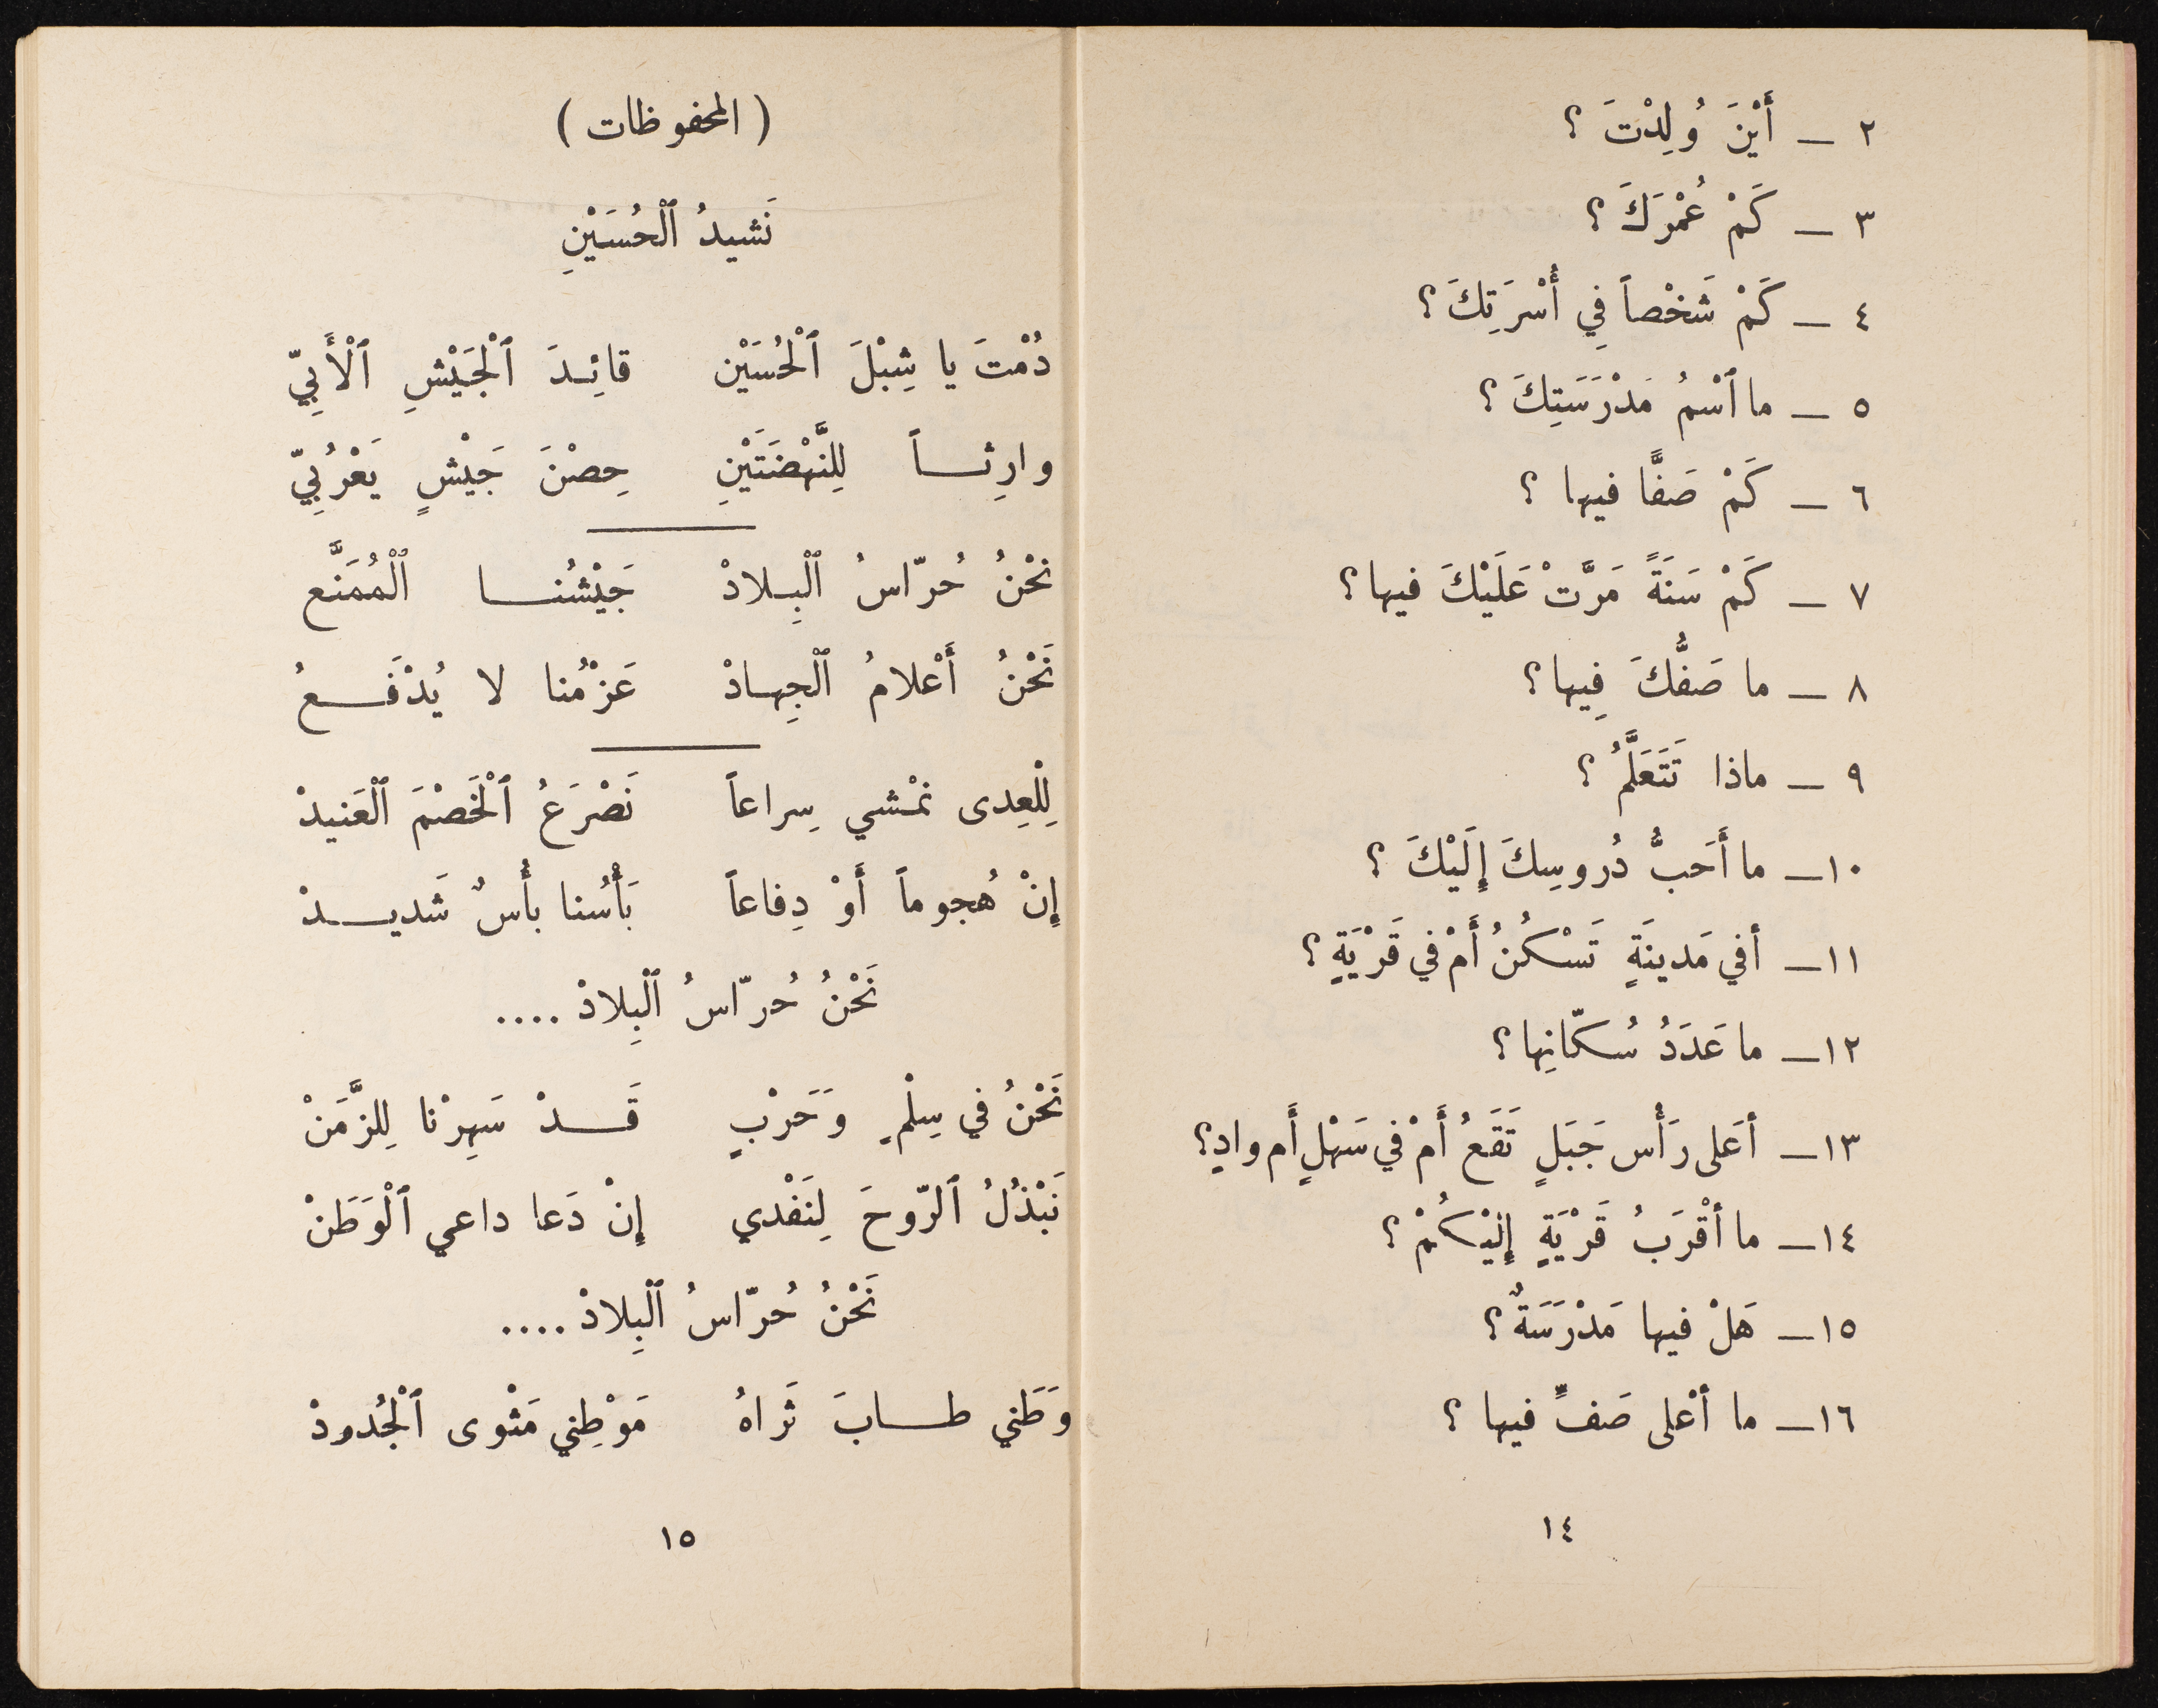 ٢ ــ أَيْنَ وُلِدْتَ ؟
٣ ــ كَمْ عُمْرَكَ ؟
٤ ــ كَمْ شَخْصاً فِي أُسْرَتِكَ ؟
٥ ــ ما ٱسْمُ مَدْرَسَتِكَ ؟
٦ ــ كَمْ صَفًّا فيها ؟
٧ ــ كَمْ سَنَةً مَرَّتْ عَلَيْكَ فيها ؟
٨ ــ ما صَفُّكَ فِيها ؟
٩ ــ ماذا تَتَعَلَّمُ ؟
١٠ ــ ما أَحَبُّ دُروسِكَ إِلَيْكَ ؟
١١ ــ أفي مَدينَةٍ تَسْكُنُ أَمْ في قَرْيَةٍ ؟
١٢ ــ ما عَدَدُ سُكّانِها ؟
١٣ ــ أعَلى رَأْس جَبَلٍ تَقَعُ أَمْ في سَهْلٍ أَم وادٍ ؟
١٤ ــ ما أقْرَبُ قَرْيَةٍ إِلَيْكُمْ ؟
١٥ ــ هَلْ فيها مَدْرَسَةٌ ؟
١٦ ــ ما أعْلى صَفٍّ فيها ؟
١٤
( المحفوظات )
نَشيدُ ٱلْحُسَيْنِ
دُمْتَ يا شِبْلَ ٱلْحُسَيْن قائِدَ ٱلْجَيْشِ ٱلْأَبِيّ
وارِثاً لِلنَّهْضَتَيْنِ حِصْنَ جَيْشٍ يَعْرُبِيّ
نحْنُ حُرّاسُ ٱلْبِلادْ جَيْشُنا ٱلْمُمَنَّع
نَحْنُ أَعْلامُ ٱلْجِهادْ عَزْمُنا لا يُدْفَعُ
لِلْعِدى نمْشي سِراعاً نَصْرَعُ ٱلْخَصْمَ ٱلْعَنيدْ
إِنْ هُجوماً أَوْ دِفاعاً بَأْسُنا بأْسٌ شَديدْ
نَحْنُ حُرّاسُ ٱلْبِلادْ ....
نَحْنُ في سِلْمٍ وَحَرْبٍ قَدْ سَهِرْنا لِلزَّمَنْ
نَبْذُلُ ٱلرّوحَ لِنَفْدي إِنْ دَعا داعي ٱلْوَطَنْ
نَحْنُ حُرّاسُ ٱلْبِلادْ ....
وَطَني طابَ ثَراهُ مَوْطِني مَثْوى ٱلْجُدودْ
١٥